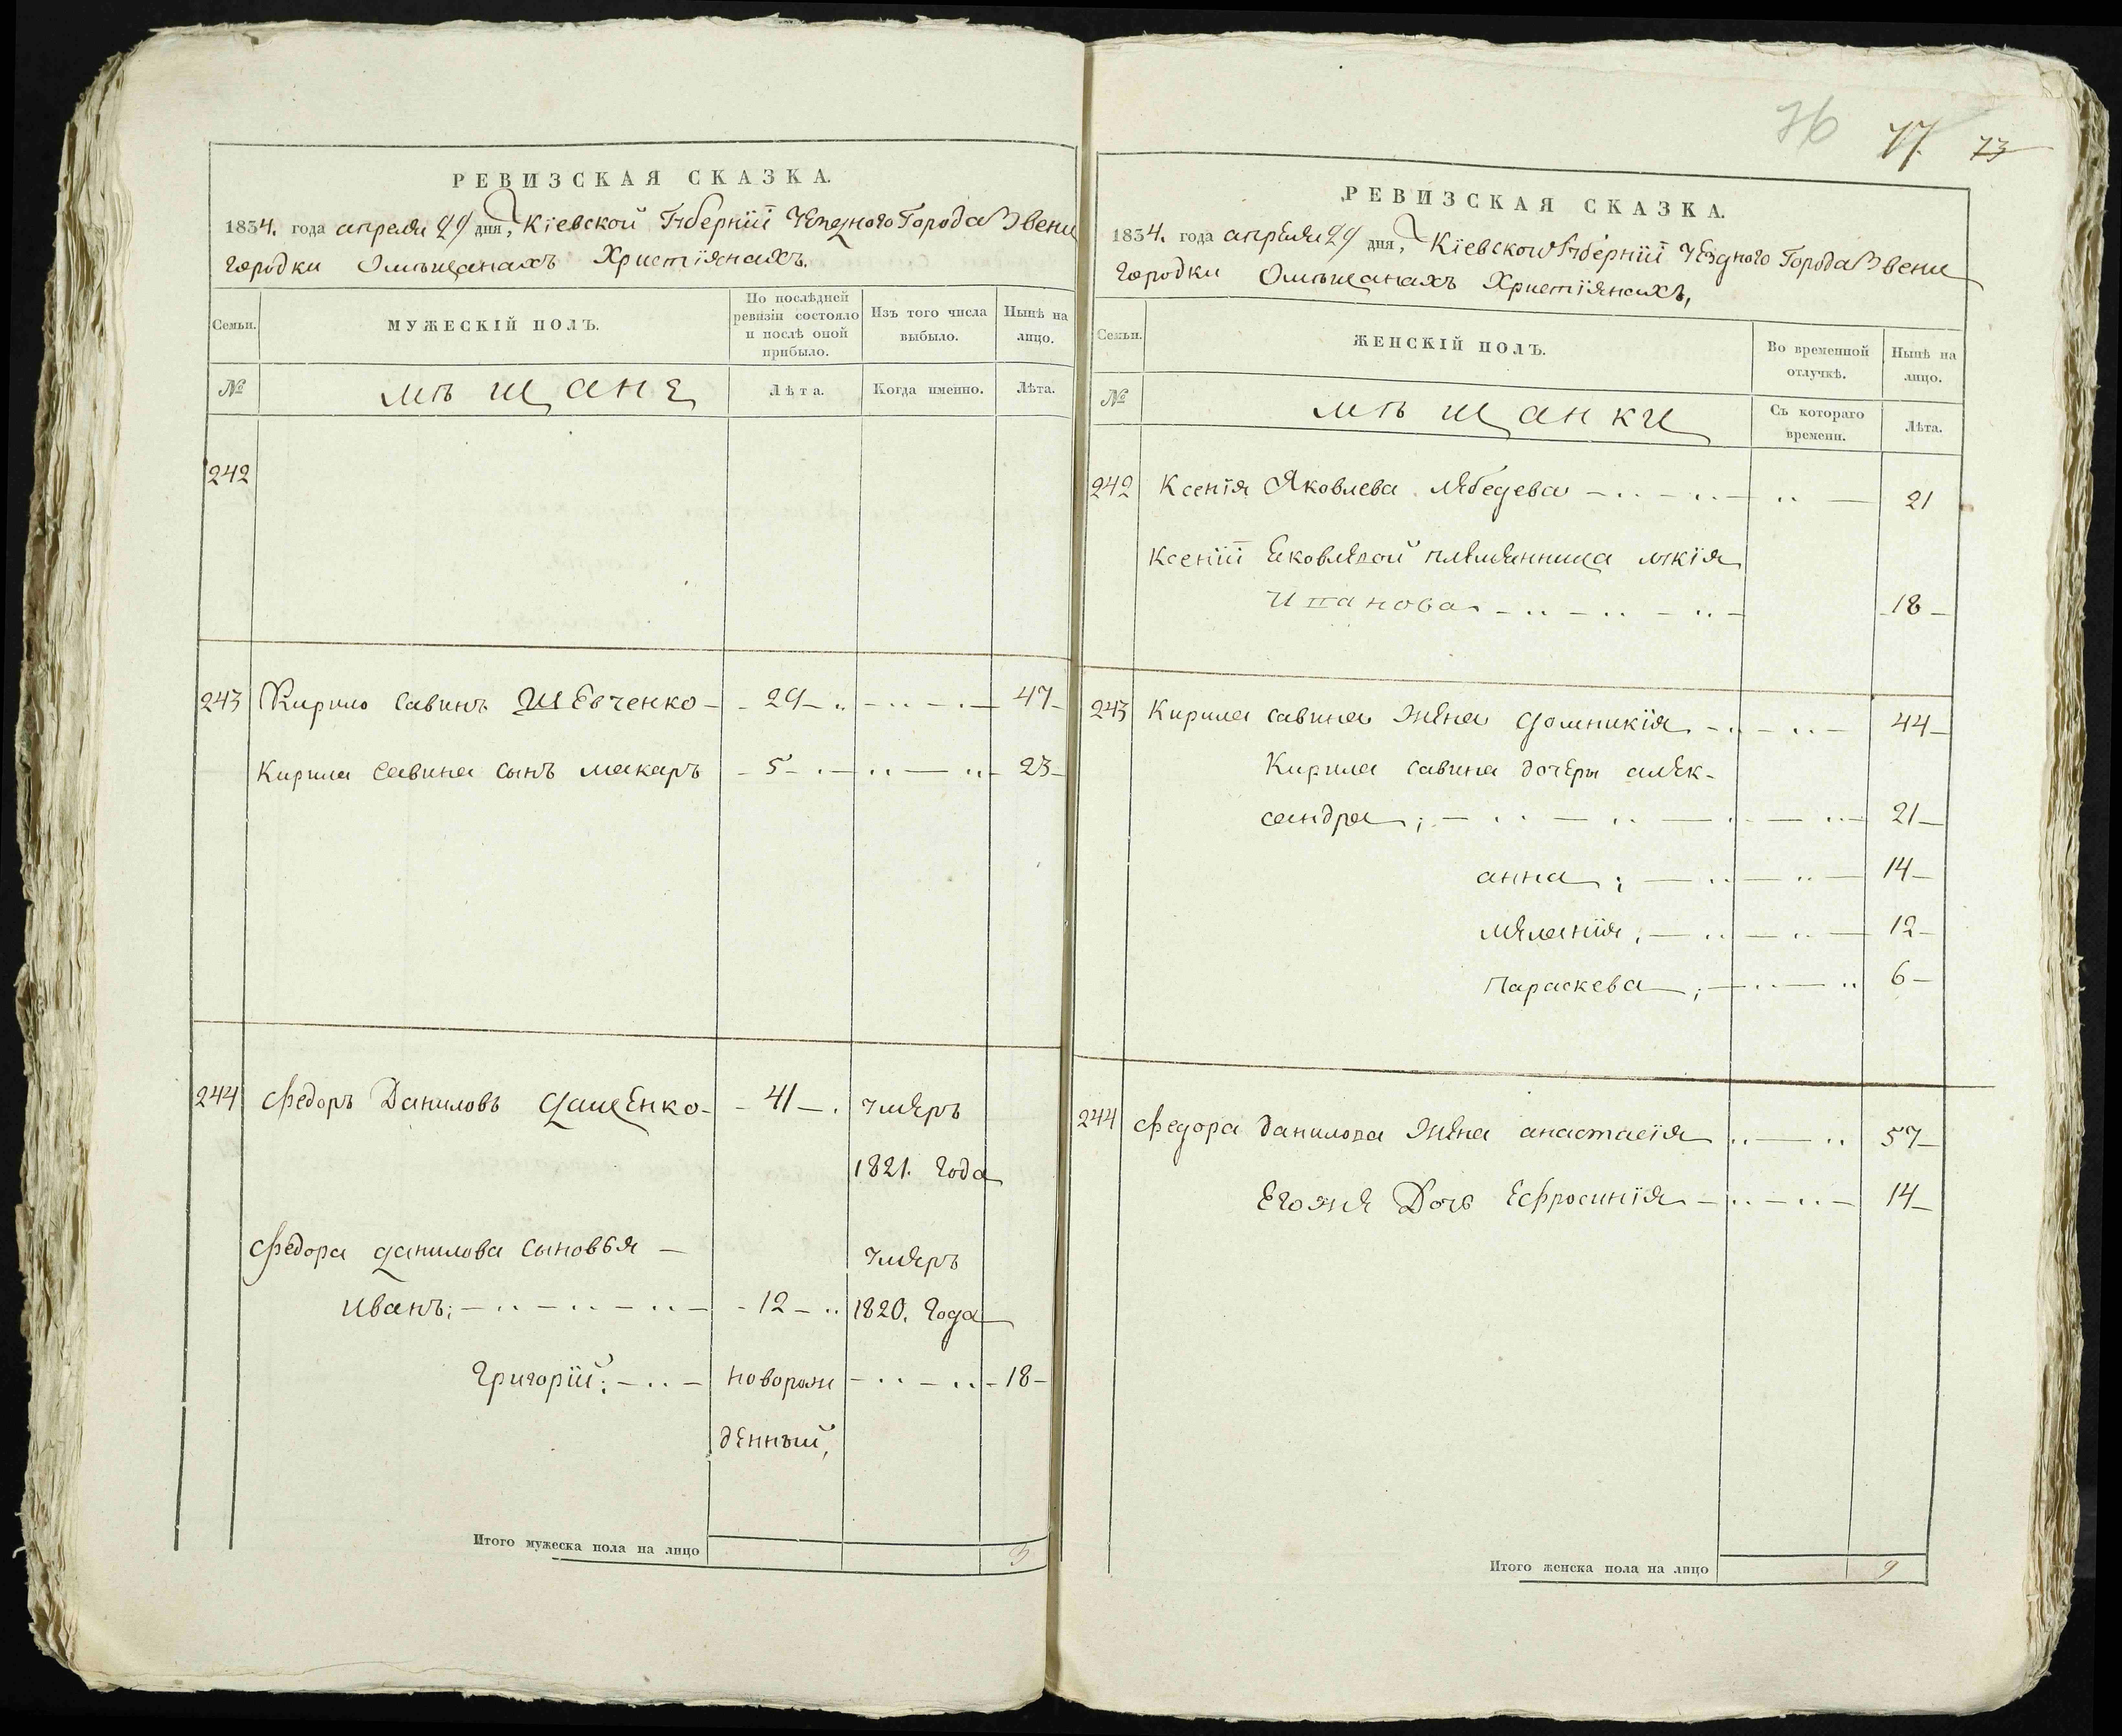 РЕВИЗСКАЯ СКАЗКА.
1834. года апреля 29 дня, Кіевской Губерніи Уезднаго Города Звени
городки Омѣщанахъ Христіянахъ.
Семьи.
МУЖЕСКІЙ ПОЛЪ.
По послѣдней ревизіи состояло и послѣ оной прибыло.
Изъ того числа выбыло.
Нынѣ на лицо.
№
мѣщане
Лѣта.
Когда именно.
Лѣта.
242
243 Кирило Савинъ Шевченко - 29 - 47
Кирила Савина сынъ макаръ - 5 - 23
244 Федоръ Даниловъ дащенко - 41 - умеръ
1821. года
Федора данилова сыновья - умеръ
иванъ; - 12 - 1820. года
григорій; - новорож - 18 -
денный,
Итого мужеска пола на лицо 3
76 77. 73
РЕВИЗСКАЯ СКАЗКА.
1834. года апреля 29 дня, Кіевской Губерніи Уезднаго Города Звени
городки Омѣщанахъ Христіянахъ,
Семьи.
ЖЕНСКІЙ ПОЛЪ.
Во временной отлучкѣ.
Нынѣ на лицо.
№
мѣщанки
Съ котораго времени.
Лѣта.
242 Ксенія Яковлева Лебедева - 21
Ксеніи Яковлевой племянница
Иванова - 18 -
243 Кирила савина жена домникія - 44 -
Кирила савина дочеры алек-
сандра; - 21 -
анна; - 14 -
меланія, - 12 -
параскева; - 6 -
244 Федора данилова жена анастасія - 57 -
Егожя Дочь Ефросинія - 14 -
Итого женска пола на лицо 9